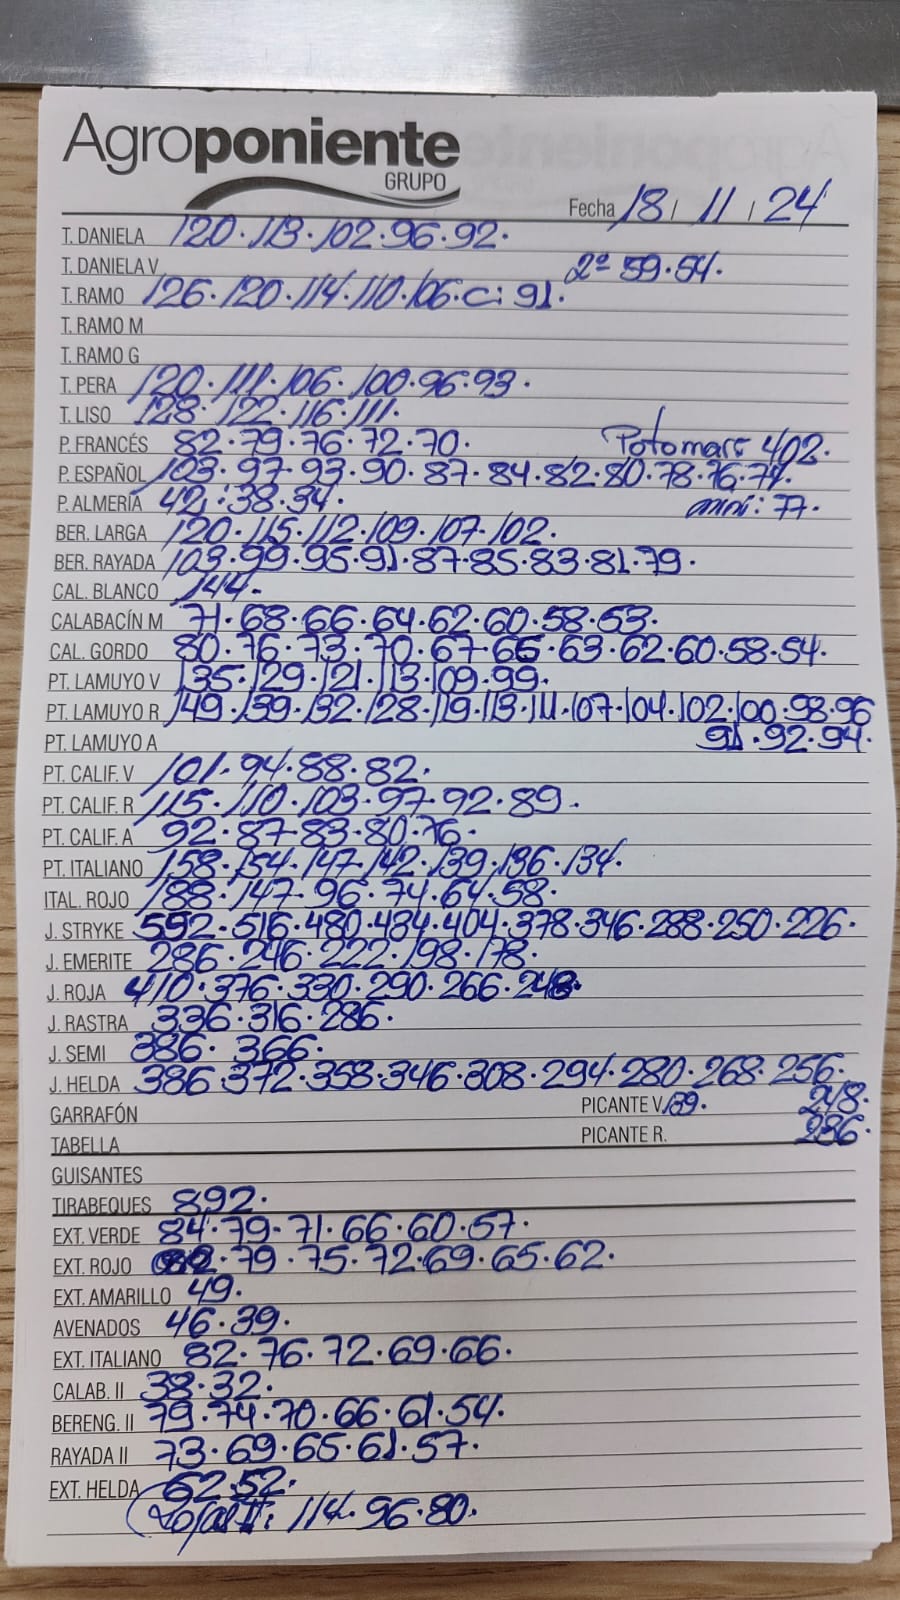 Agroponiente
GRUPO
Fecha 18 / 11 / 24
T. DANIELA 120·113·102·96·92·
T. DANIELA V 2ª 59·54·
T. RAMO 126·120·114·110·106·C: 91·
T. RAMO M
T. RAMO G
T. PERA 120·111·106·100·96·93·
T. LISO 128·122·116·111·
P. FRANCÉS 82·79·76·72·70· 402·
P. ESPAÑOL 103·97·93·90·87·84·82·80·78·76·74·
P. ALMERÍA 42·38·34· mini: 77·
BER. LARGA 120·115·112·109·107·102·
BER. RAYADA 103·99·95·91·87·85·83·81·79·
CAL. BLANCO 144·
CALABACÍN M 71·68·66·64·62·60·58·53·
CAL. GORDO 80·76·73·70·67·65·63·62·60·58·54·
PT. LAMUYO V 135·129·121·113·109·99·
PT. LAMUYO R 149·139·132·128·119·113·111·107·104·102·100·98·96
PT. LAMUYO A 91·92·94·
PT. CALIF. V 101·94·88·82·
PT. CALIF. R 115·110·103·97·92·89·
PT. CALIF. A 92·87·83·80·76·
PT. ITALIANO 158·154·147·142·139·136·134·
ITAL. ROJO 188·147·96·74·64·58·
J. STRYKE 592·516·480·484·404·378·346·288·250·226·
J. EMERITE 286·246·222·198·178·
J. ROJA 410·376·330·290·266·248·
J. RASTRA 336·316·286·
J. SEMI 386·366·
J. HELDA 386·372·358·346·308·294·280·268·256·
GARRAFÓN PICANTE V. 139· 248·
TABELLA PICANTE R. 236·
GUISANTES
TIRABEQUES 892·
EXT. VERDE 84·79·71·66·60·57·
EXT. ROJO 79·75·72·69·65·62·
EXT. AMARILLO 49·
AVENADOS 46·39·
EXT. ITALIANO 82·76·72·69·66·
CALAB. II 38·32·
BERENG. II 79·74·70·66·61·54·
RAYADA II 73·69·65·61·57·
EXT. HELDA 62·52·
II: 114·96·80·